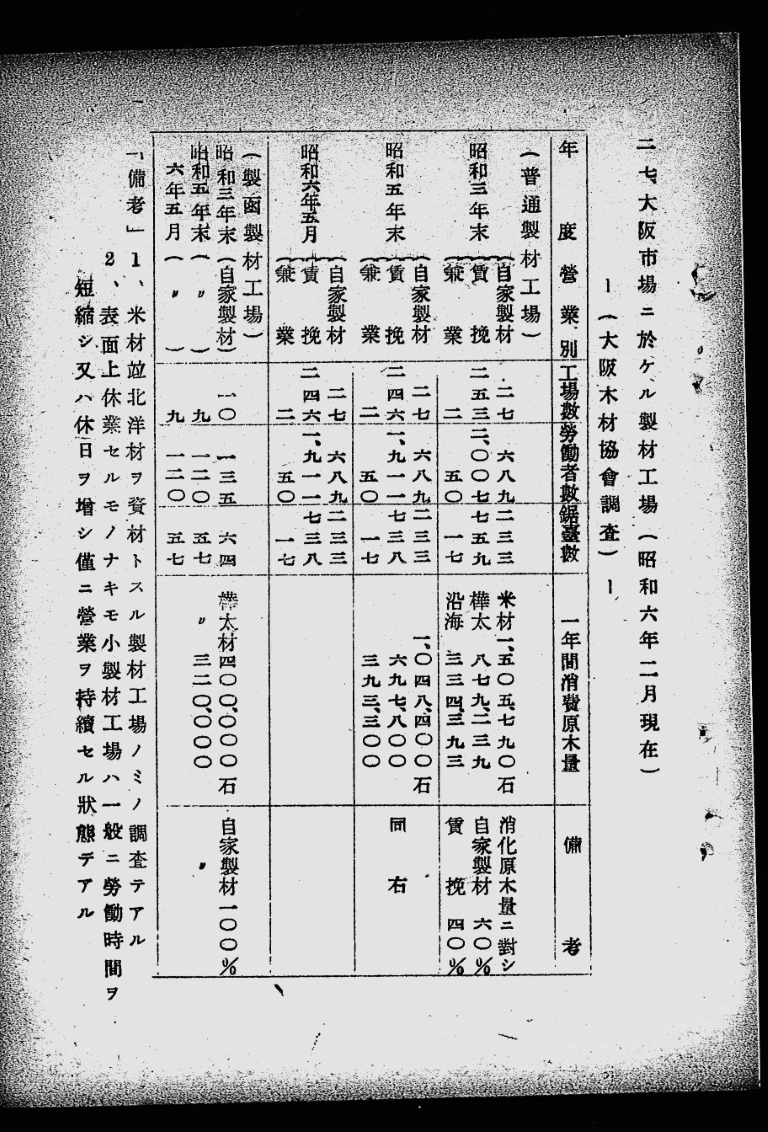 二七、大阪市場ニ於ケル製材工場(昭和六年二月現在)
―(大阪木材協會調査)―
年度 營業別 工場數 勞働者數 鋸臺數 一年間消費原木量 備考
(普通製材工場)
自家製材 二七 六八九 二三三 米材一、五〇五、七九〇石 消化原木量ニ對シ
昭和三年末 賃挽 二五三 二、〇〇七 七五九 樺太 八七九、二三九 自家製材 六〇%
兼業 二 五〇 一七 沿海 三三四、三九三 賃挽 四〇%
自家製材 二七 六八九 二三三 一、〇四八、四〇〇石
昭和五年末 賃挽 二四六 一、九一一 七三八 六九七、八〇〇 同右
兼業 二 五〇 一七 三九三、三〇〇
自家製材 二七 六八九 二三三
昭和六年五月 賃挽 二四六 一、九一一 七三八
兼業 二 五〇 一七
(製函製材工場)
昭和三年末(自家製材) 一〇 一三五 六四 樺太材四〇〇、〇〇〇石 自家製材一〇〇%
昭和五年末(〃) 九 一二〇 五七 〃 三二〇、〇〇〇 〃
六年五月(〃) 九 一二〇 五七
「備考」1、米材竝北洋材ヲ資材トスル製材工場ノミノ調査テアル
2、表面上休業セルモノナキモ小製材工場ハ一般ニ勞働時間ヲ
短縮シ又ハ休日ヲ增シ僅ニ營業ヲ持續セル狀態デアル